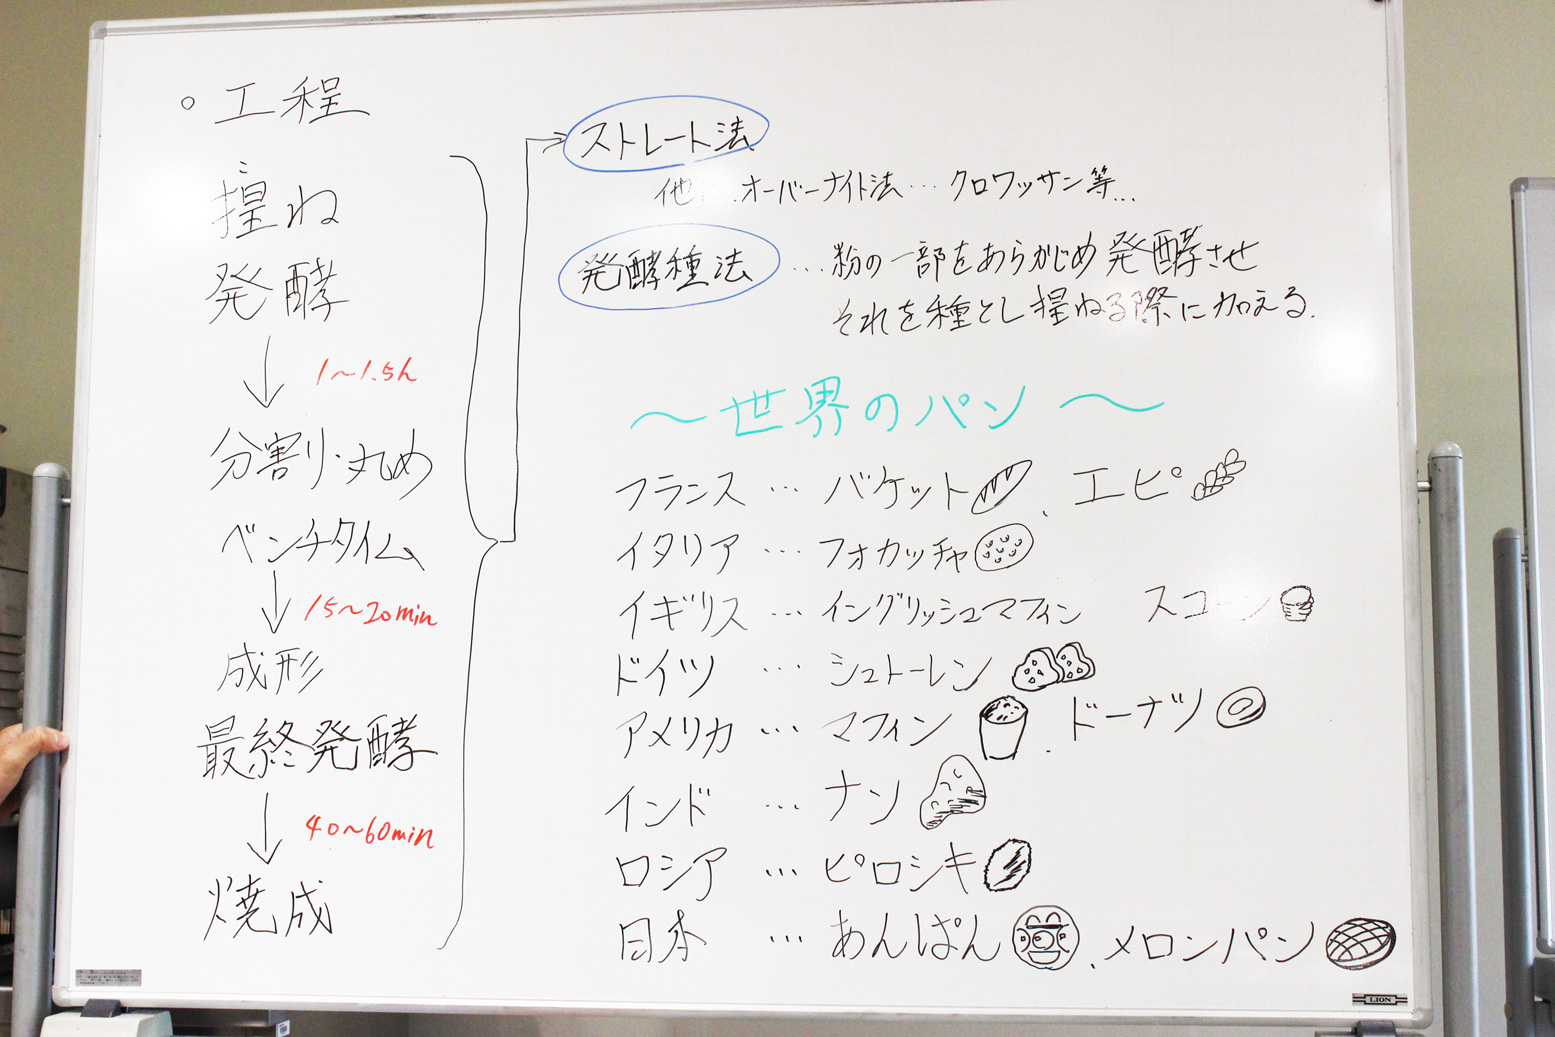 ○工程
捏ね
発酵
1～1.5h
分割り・丸め
ベンチタイム
15～20min
成形
最終発酵
40～60min
焼成
ストレート法
他に、オーバーナイト法…クロワッサン等…
発酵種法…粉の一部をあらかじめ発酵させ
それを種とし捏ねる際に加える.
～世界のパン～
フランス…バケット、エピ
イタリア…フォカッチャ
イギリス…イングリッシュマフィン スコーン
ドイツ…シュトーレン
アメリカ…マフィン、ドーナツ
インド…ナン
ロシア…ピロシキ
日本…あんぱん、メロンパン
LION